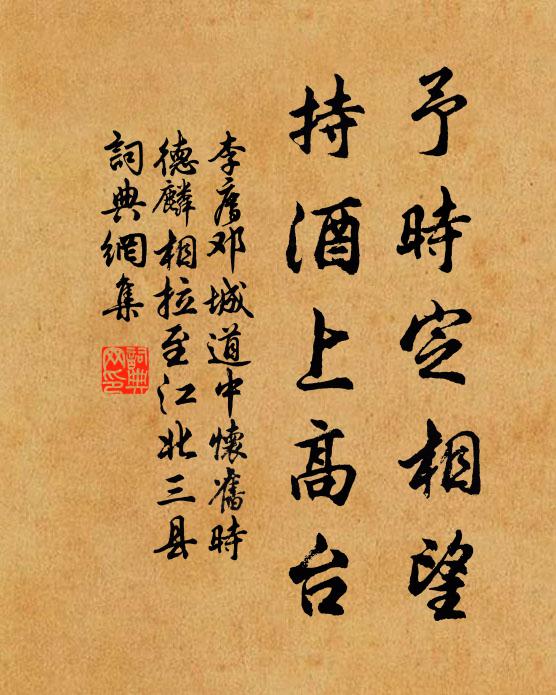 予時定相望
持酒上高台
李廌邓城道中懷舊時
德麟相拉至江北三县
詞典網集
詞典網印